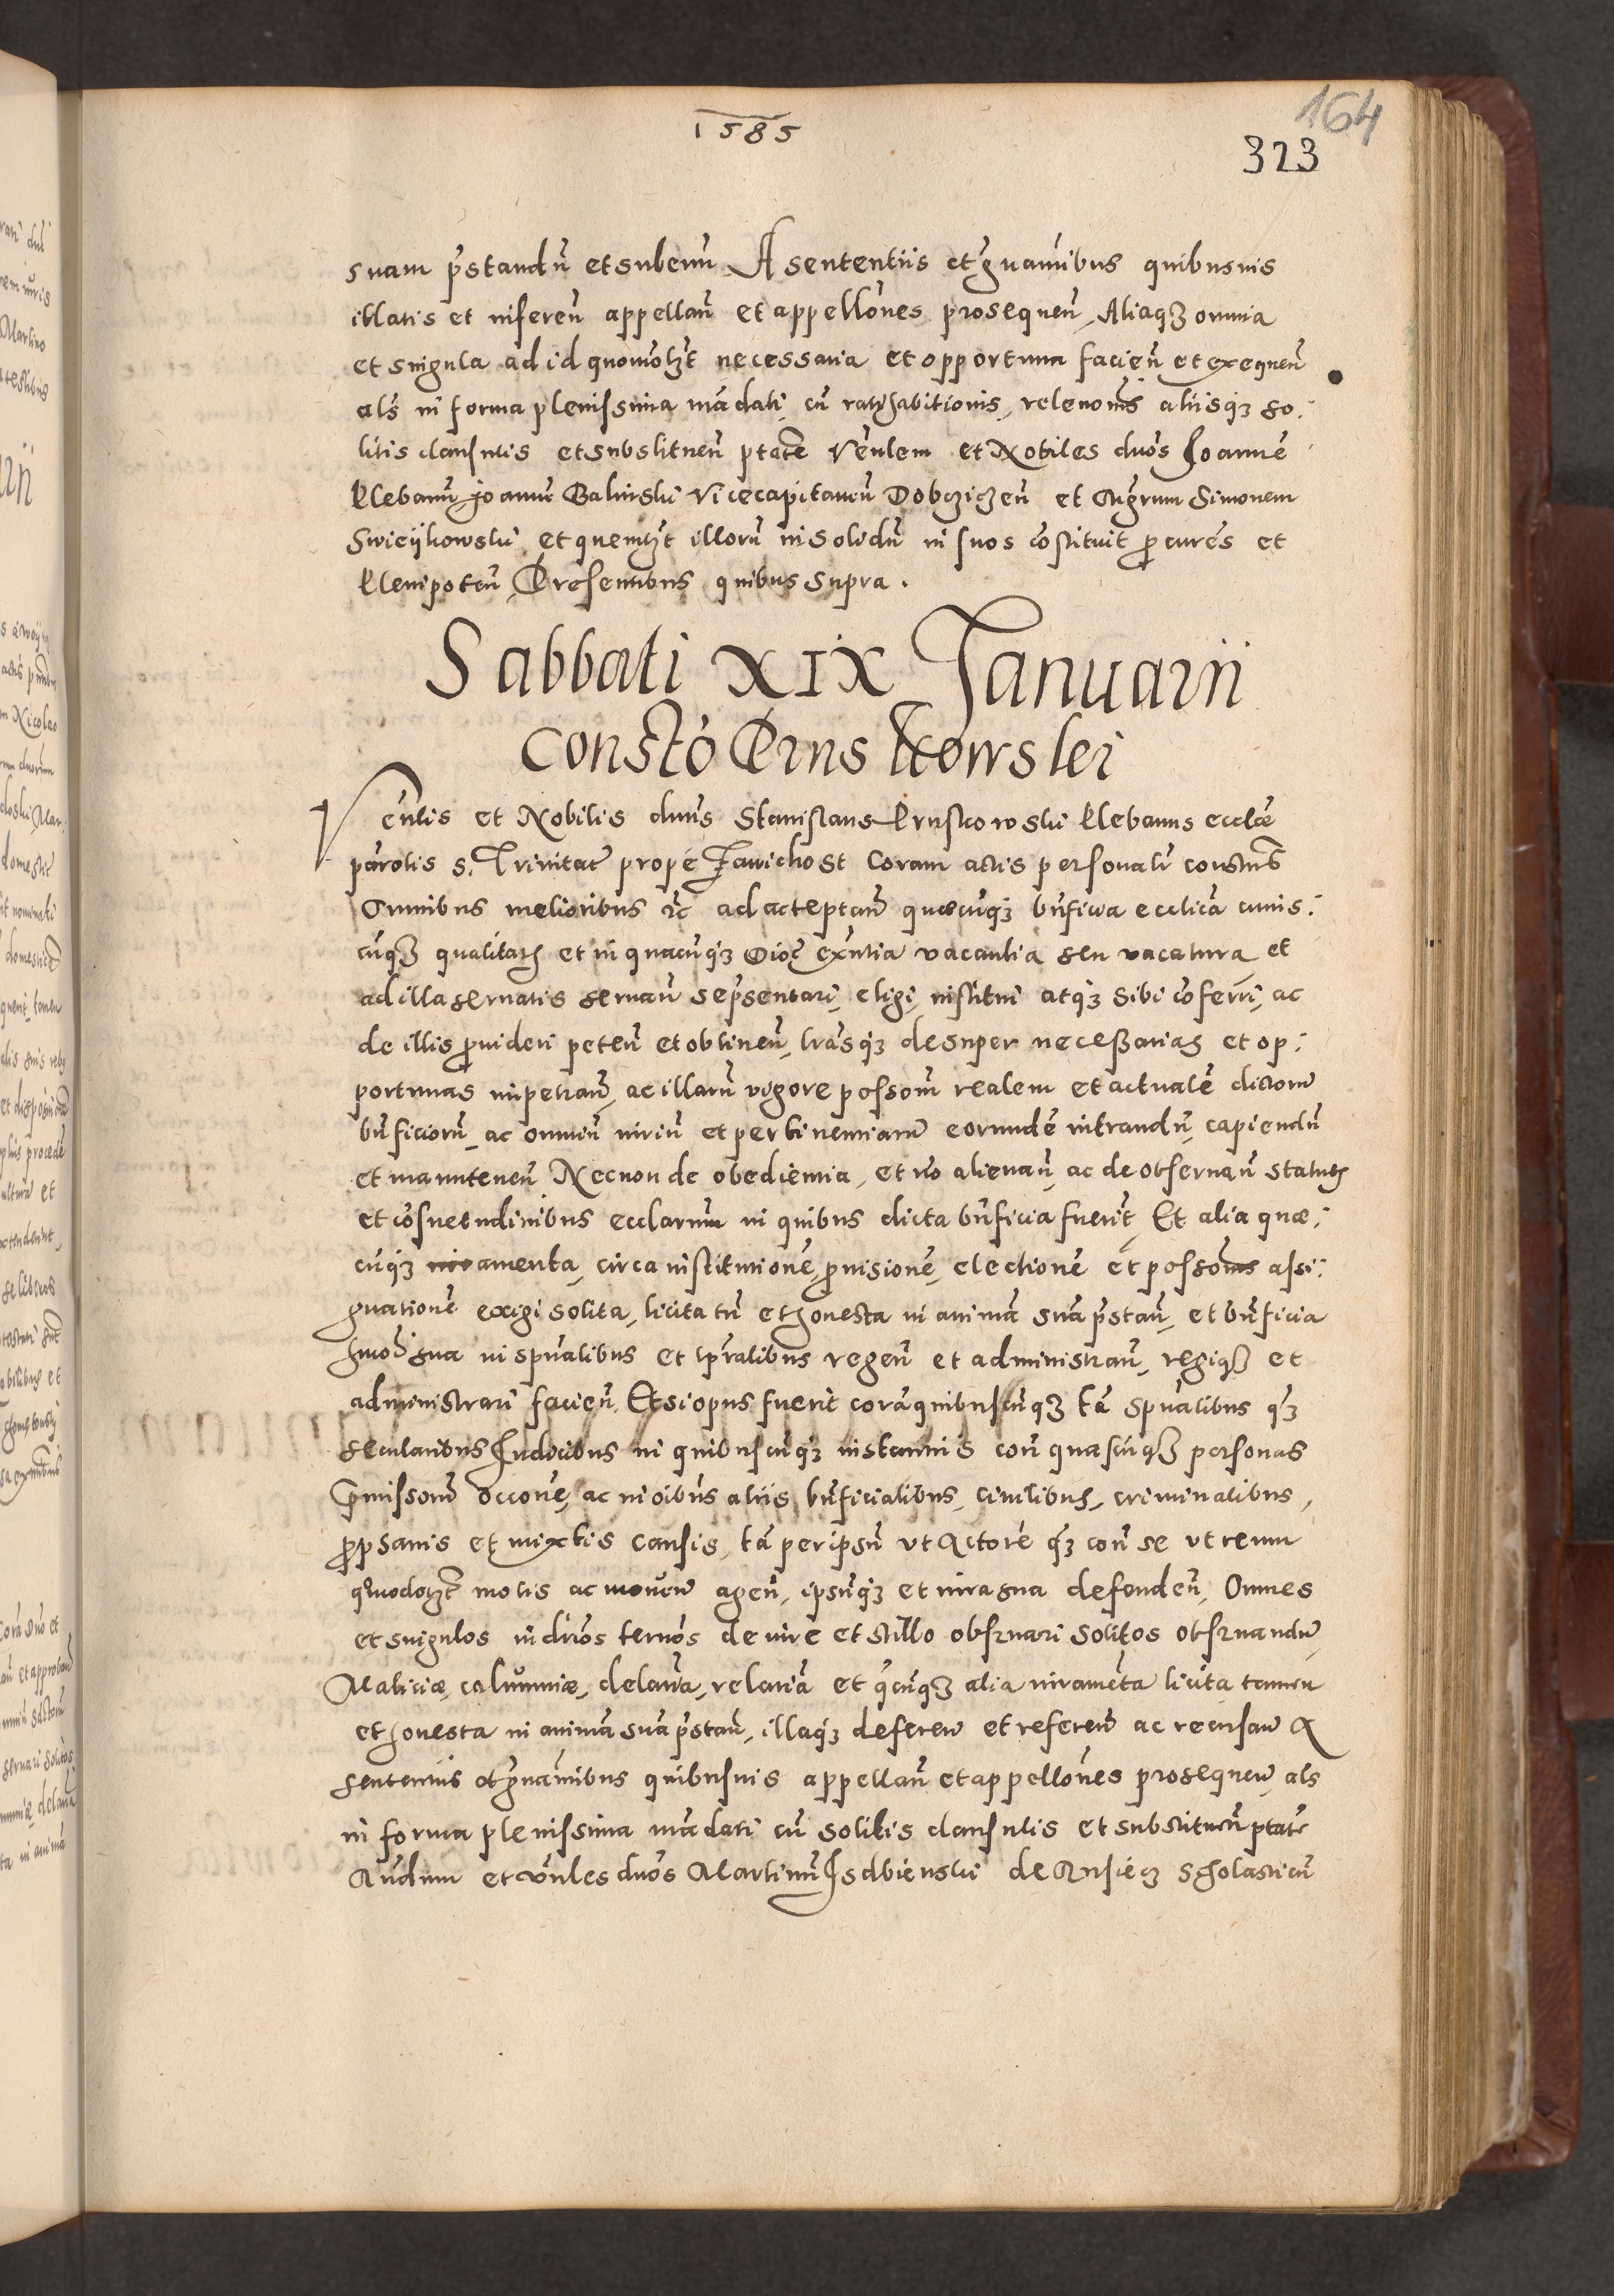 1585
164
323
suam pstandũ et subeuñ A sententiis et grauaminibus quibusuis
illatis et inferen̄ appellan̄ et appellones prosequen̄, Aliaq3 omnia
et singula ad id quomolz̄t necessaria et opportuna facien̄ et exequen̄
als in forma plenissima mãdati, cũ ratihabitionis, releuonis aliisq3 so⸗
litis clausulis et substituen̄ ptatẽ Venlem et Nobiles dnos Joannẽ
Plebanũ, Joannẽ Balinski Vicecapitaneũ Dobcziczen̄ et Mgrum Simonem
Swieijkowski et quemlz̄t illorũ insolidũ in suos cõstituit procures et
Plenipoten̄, Presentibus quibus supra.
Sabbati XIX Januarii
Constō Prusskowskj
Venlis et Nobilis dnus Stanislaus Pruskowski Plebanus ecclæ
parolis s. Trinitat prope Zawichost Coram actis personalr constuts
Omnibus melioribus etc̄ ad acceptan̄ quæcũq3 bnficia ecclica cuius⸗
cũq3 qualitatis et in quacũq3 dioc exñtia vacantia seu vacatura et
ad illa seruatis seruan̄ se psentari, eligi, institui atq3 sibi cõferri, ac
de illis prouideri peten̄ et obtinen̄, lrasq3 desuper necessarias et op⸗
portunas impetran̄, ac illarũ vigore possom̄ realem et actualẽ dictorũ
bnficiorũ, ac omniũ iuriũ et pertinentiarũ eorundẽ intrandũ, capiendũ
et manutenen̄ Necnon de obedientia, et nõ alienan̄, ac de obseruan̄ statutis
et cõsuetudinibus ecclarum in quibus dicta bnficia fuerit, Et alia quæ⸗
cũq3 iuramenta, circa institutionẽ, prouisionẽ, electionẽ et possonis assi⸗
gnationẽ exigi solita, licita tñ et honesta in animã suã pstan̄, et bnficia
hmõi sua in spualibus et tpralibus regen̄ et administran̄, regiq3 et
administrari facien̄, Et si opus fuerit corã quibuscũq3 tã spualibus q3
secularibus Judicibus in quibuscũq3 instantiis con̄ quascũq3 personas
pmissorũ occone, ac in oibus aliis bnficialibus, ciuilibus, criminalibus,
prophanis et mixtis causis, tã per ipsũ vt Actorẽ q3 con̄ se vt reum
quomodolz̄t motis ac mouen̄ agen̄, ipsũq3 et iura sua defenden̄, Omnes
et singulos iudrios termos de iure et stillo obseruari solitos obseruandũ,
Maliciæ, calumniæ, delan̄a, relan̄a et qcũq3 alia iuramẽta licita tamen
et honesta in animã suã pstan̄, illaq3 deferen̄ et referen̄ ac recusan̄ A
sententiis et grauaminibus quibusuis appellan̄ et appellones prosequen̄, als
in forma plenissima mãdati cũ solitis clausulis et substituen̄ ptate
Rndum et vñles dnos Martinũ Isdbienski de Rusiecz Scholasticũ